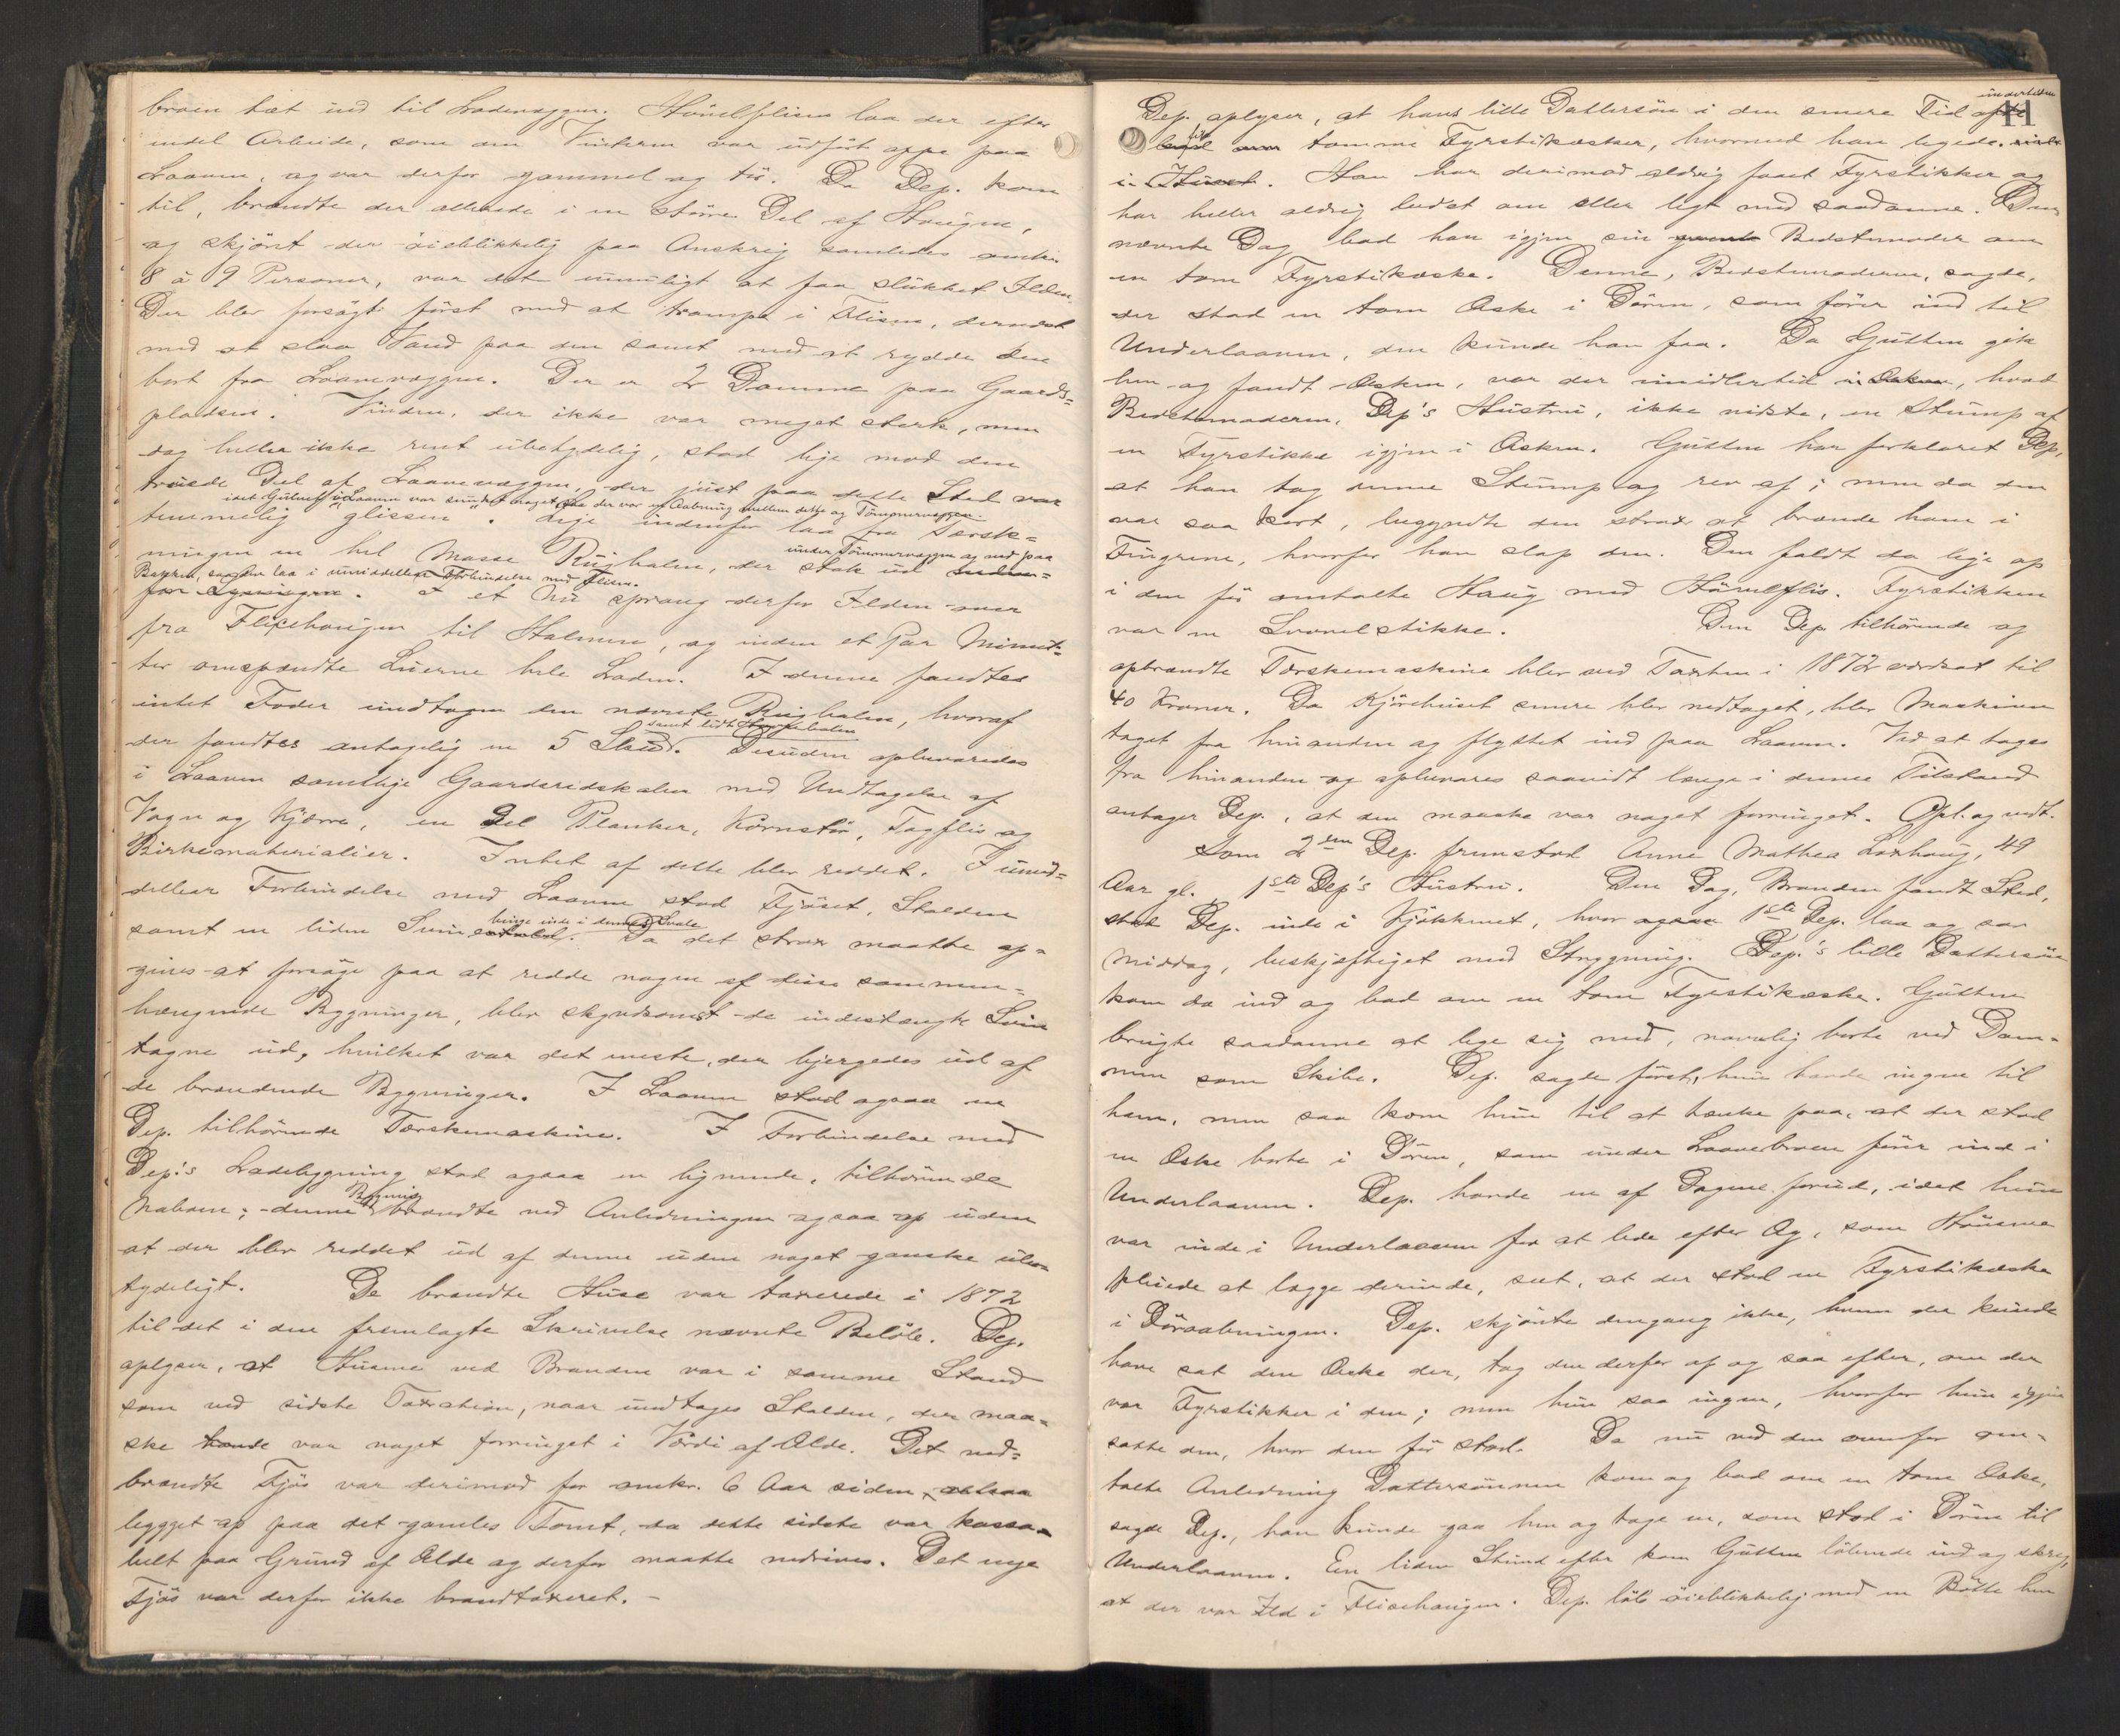 broen tæt ind til Ladevæggen. Hövelflisen laa der efter
endel Arbeide, som om Vinteren var udført oppe paa
Laaven, og var derfor gammel og tör. Da Dep. kom
til, brændte der allerede i en större Del af Haugen,
og skjönt der öieblikkelig paa Anskrig samledes omkr.
8 à 9 Personer, var det umuligt at faa slukket Ilden.
Der blev forsögt först med at trampe i Flisen, dernæst
med at slaa Vand paa den samt med at rydde den
bort fra Laavevæggen. Der er 2 Damme paa Gaards=
pladsen. Vinden, der ikke var meget sterk, men
dog heller ikke rent ubetydelig, stod lige mod den
truede Del af Laavevæggen, der just paa dette Sted var
idet Gulvet i Laaven var sunket noget, saa der var en Aabning mellem dette og Tömmervæggen.
temmelig "glissen". Lige indenfor laa fra Tærsk=
ningen en hel Masse Rughalm, der stak ud
under Tömmervæggen og ned paa
Bakken, saa den laa i umiddelbar Forbindelse med Flisen.
I et Nu sprang derfor Ilden over
fra Flisehaugen til Halmen, og inden et Par Minut=
ter omspændte Luerne hele Laden. I denne fandtes
intet Foder undtagen den nævnte Rughalm, hvoraf
der fandtes antagelig en 5 Stud. Desuden opbevaredes
i Laaven samtlige Gaardsredskaber med Undtagelse af
Vogn og Kjærre, en Del Planker, Kornstör, Tagflis og
Birkematerialier. Intet af dette blev reddet. I umid=
delbar Forbindelse med Laaven stod Fjöset, Stalden
samt en liden Svinebinge inde i dennes Svale. Da det strax maatte op=
gives at forsöge paa at redde nogen af disse sammen=
hængende Bygninger, blev skyndsomst de indestængte Svin
tagne ud, hvilket var det eneste, der bjergedes ud af
de brændende Bygninger. I Laaven stod ogsaa en
Dep. tilhörende Tærskemaskine. I Forbindelse med
Dep.'s Ladebygning stod ogsaa en lignende, tilhörende
Naboen; denne Bygning brændte ved Anledningen ogsaa op uden
at der blev reddet ud af denne uden noget ganske ube=
tydeligt. De brændte Huse var taxerede i 1872
til det i den fremlagte Skrivelse nævnte Belöb. Dep.
oplyser, at Husene ved Branden var i samme Stand
som ved sidste Taxation, naar undtages Stalden, der maa=
ske havde var noget forringet i Værdi af Ælde. Det ned=
brændte Fjös var derimod for omkr. 6 Aar siden
bygget op paa det gamles Tomt, da dette sidste var kassa=
belt paa Grund af Ælde og derfor maatte nedrives. Det nye
Fjös var derfor ikke brandtaxeret. -
11
Dep. oplyser, at hans lille Dattersön i den senere Tid undertiden
tomme Fyrstikæsker, hvormed han legede.
i Huset. Han har derimod aldrig faaet Fyrstikker og
har heller aldrig budst om eller legt med saadanne. Den
nævnte Dag bad han igjen sin Bedstemoder om
en tom Fyrstikæske. Denne, Bedstemoderen, sagde,
der stod en tom Æske i Dören, som förer ind til
Underlaaven, den kunde han faa. Da Gutten gik
hen og fandt Æsken, var der imidlertid, hvad
Bedstemoderen, Dep's Hustru, ikke vidste, en Stump af
en Fyrstikke igjen i Æsken. Gutten har forklaret Dep,
at han tog denne Stump og rev af; men da den
var saa kort, begyndte den strax at brænde ham i
Fingrene, hvorfor han slap den. Den faldt da lige op
i den för omtalte Haug med Hövelflis. Fyrstikken
var en Svovelstikke. Den Dep. tilhörende og
opbrændte Tærskemaskine blev ved Taxten i 1872 værdsat til
40 Kroner. Da Kjörehuset senere blev nedtaget, blev Maskinen
taget fra hinanden og flyttet ind paa Laaven. Ved at tages
fra hinanden og opbevares saavidt længe i denne Tilstand
antager Dep., at den maaske var noget forringet. Opl. og vedt.
Som 2den Dep. fremstod Anne Mathea Laxhaug, 49
Aar gl., 1ste Dep's Hustru. Den Dag, Branden fandt Sted,
stod Dep. inde i Kjökkenet, hvor ogsaa 1ste Dep. laa og sov
Middag, beskjeftiget med Strygning. Dep.'s lille Dattersön
kom da ind og bad om en tom Fyrstikæske. Gutten
brugte saadanne at lege sig med, navnlig borte ved Dam=
men som Skibe. Dep. sagde först, hun havde ingen til
ham, men saa kom hun til at tænke paa, at der stod
en Æske borte i Dören, som under Laavebroen förer ind i
Underlaaven. Dep. havde en af Dagene forud, idet hun
var inde i Underlaaven for at lede efter Æg, som Hönsene
pleiede at lægge derinde, seet, at der stod en Fyrstikæske
i Döraabningen. Dep. skjönte dengang ikke, hvem der kunde
have sat den Æske der, tog den derfor af og saa efter, om der
var Fyrstikker i den; men hun saa ingen, hvorfor hun igjen
satte den, hvor den för stod. Da nu ved den ovenfor om=
talte Anledning Dattersönnen kom og bad om en tom Æske,
sagde Dep., han kunde gaa hen og tage en, som stod i Dören til
Underlaaven. En liden Stund efter kom Gutten löbende ind og skreg,
at der var Ild i Flisehaugen. Dep. löb öieblikkelig med en Bötte hen